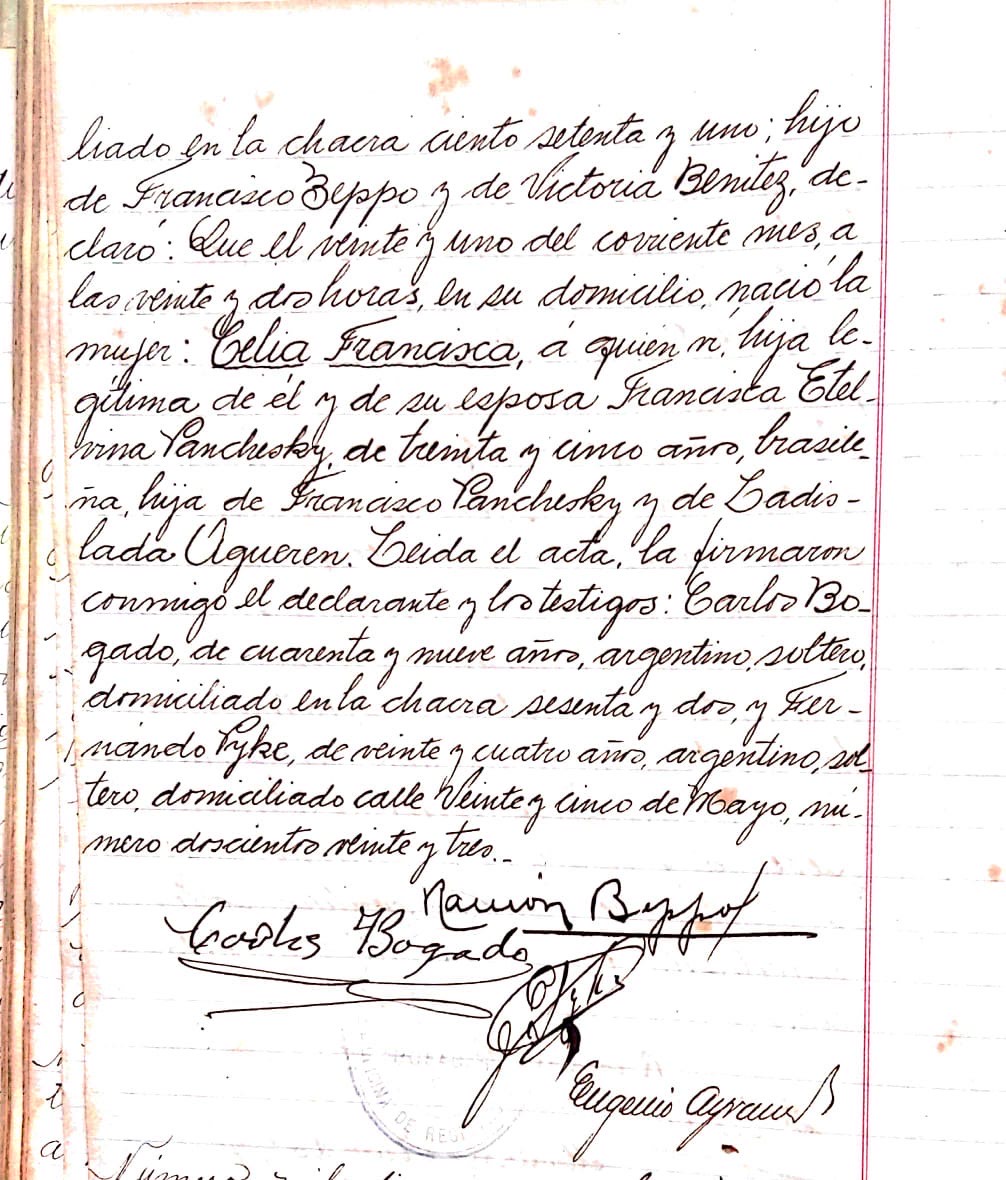 liado en la chacra ciento setenta y uno; hijo
de Francisco Beppo y de Victoria Benitez, de-
claró: Que el veinte y uno del corriente mes, a
las veinte y dos horas, en su domicilio, nació la
mujer: Celia Francisca, á quien ví, hija le-
gítima de él y de su esposa Francisca Etel-
vina Panchesky, de treinta y cinco años, brasile-
ña, hija de Francisco Panchesky y de Ladis-
lada Agueren. Leida el acta, la firmaron
conmigo el declarante y los testigos: Carlos Bo-
gado, de cuarenta y nueve años, argentino, soltero,
domiciliado en la chacra sesenta y dos, y Fer-
nando Pyke, de veinte y cuatro años, argentino, sol-
tero, domiciliado calle Veinte y cinco de Mayo, nú-
mero doscientos veinte y tres.-
Ramón Beppo
Carlos Bogado
Eugenio
OFICINA DE
Número